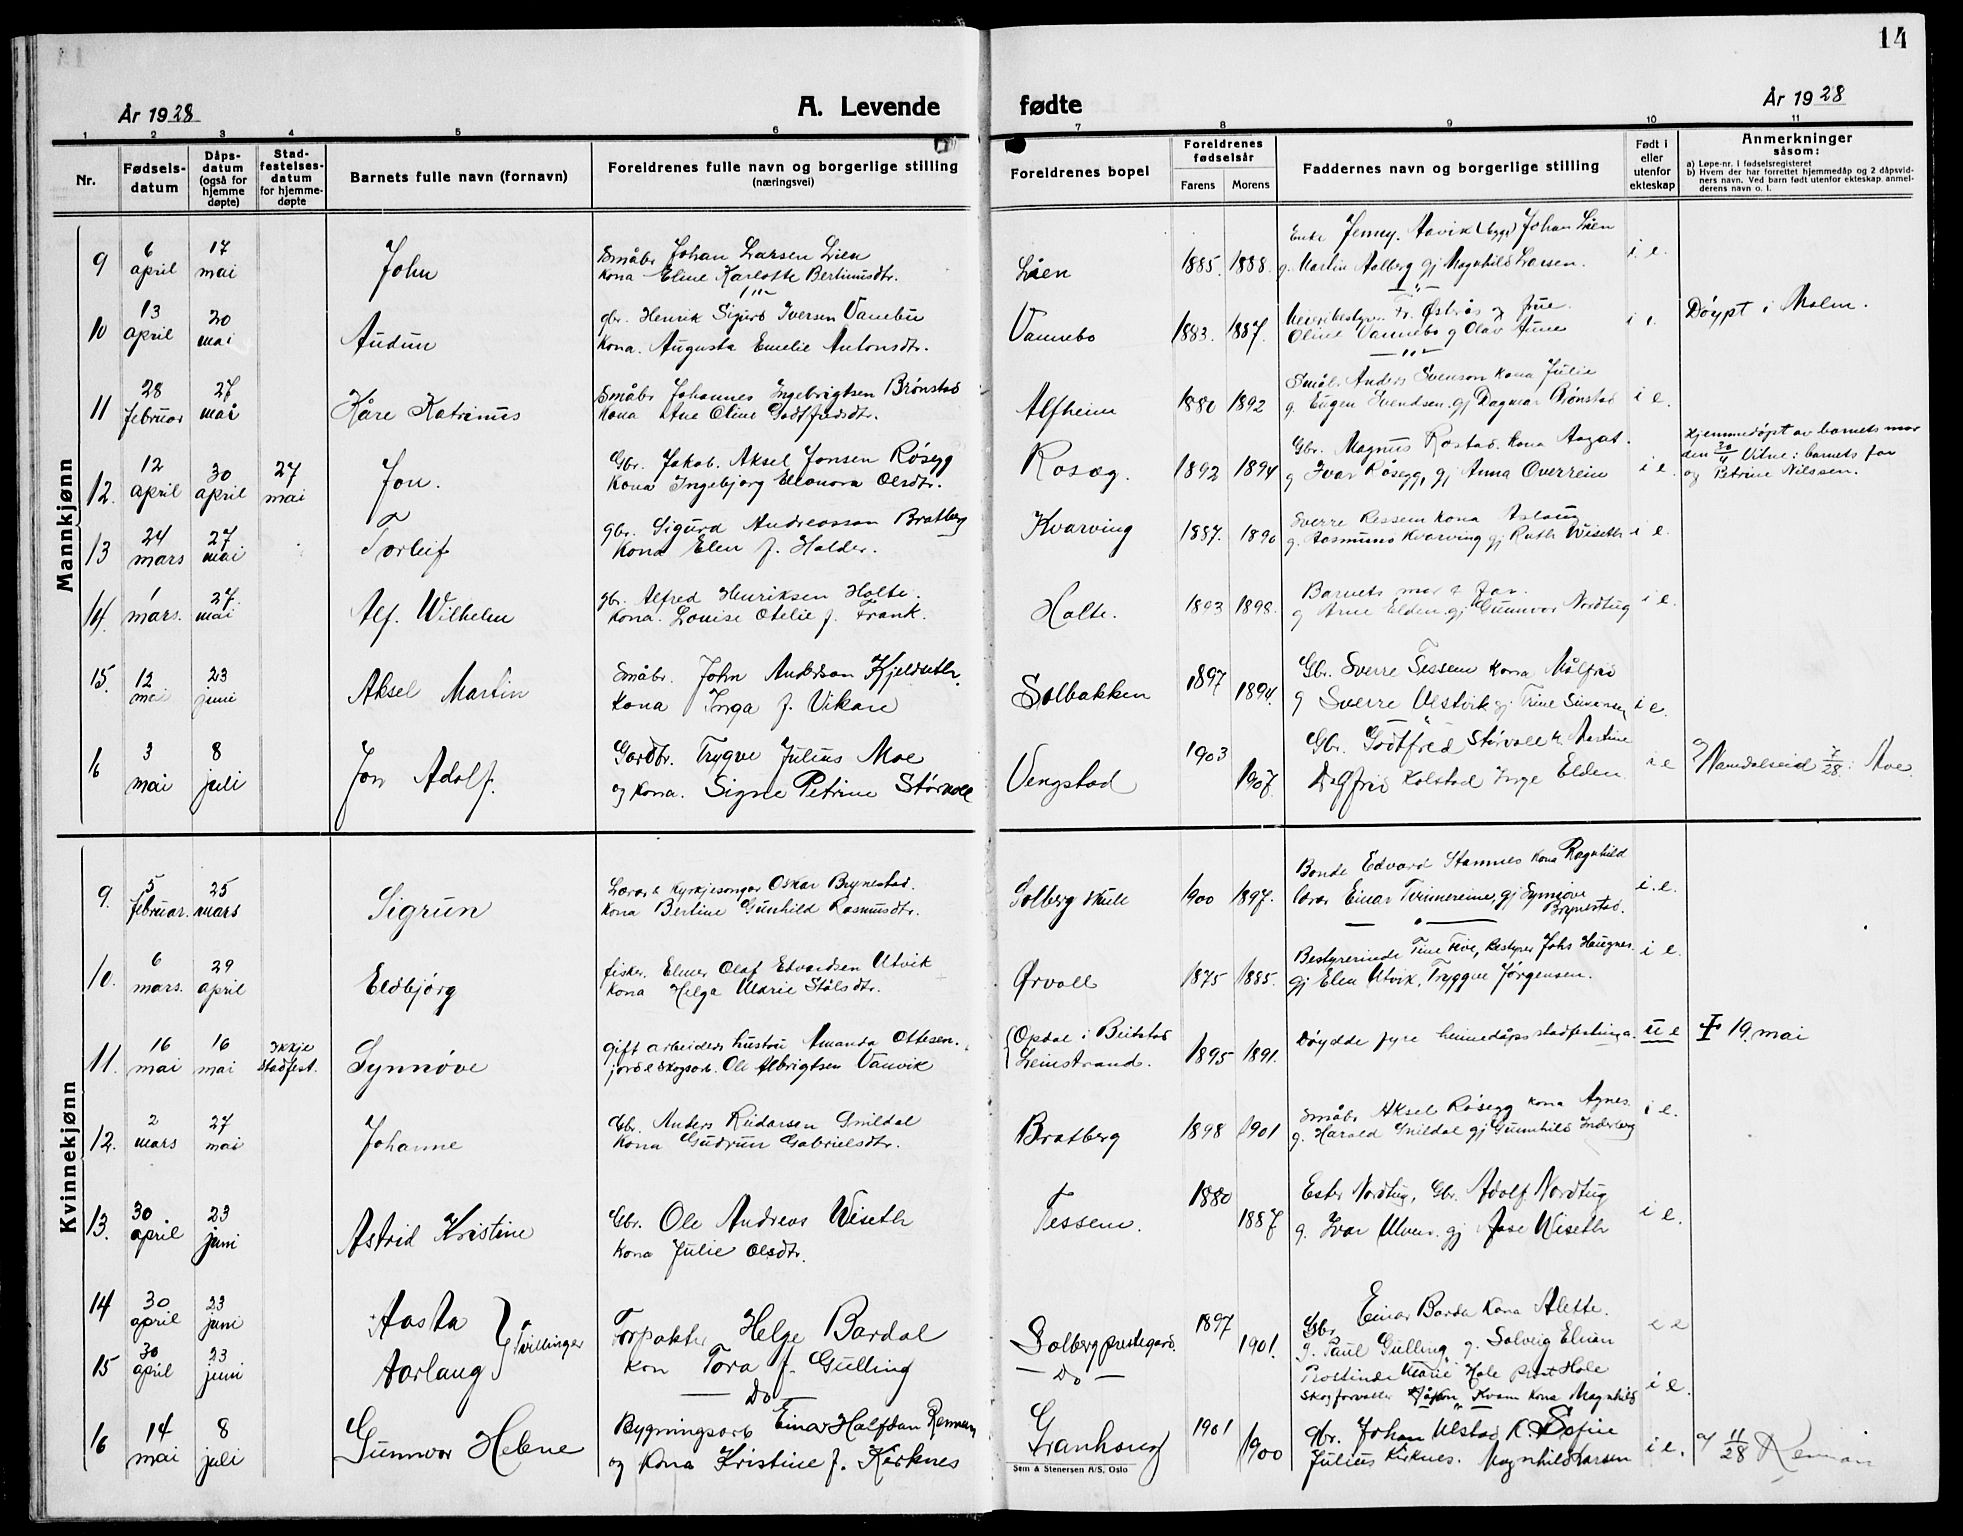 14
År 1928 A. Levende fødte År 1928
1 2 3 4 5 6 7 8 9 10 11
Nr. Fødsels-datum Dåps-datum (også for hjemme døpte) Stad-festelses-datum for hjemme-døpte Barnets fulle navn (fornavn) Foreldrenes fulle navn og borgerlige stilling (næringsvei) Foreldrenes bopel Foreldrenes fødselsår Farens Morens Faddernes navn og borgerlige stilling Født i eller utenfor ekteskap Anmerkninger såsom:
a) Løpe-nr. i fødselsregisteret
b) Hvem der har forrettet hjemmedåp og 2 dåpsvid-
ners navn. Ved barn født utenfor ekteskap anmel-
derens navn o. l.
Mannkjønn
9 6 april 17 mai John Småbr. Johan Larsen Lien Lien 1885. 1888. Enke Jenny Aavik (bygs) Johan Lien i e.
kona Eline Karlotte Bertinusdtr. g. Martin Aalberg gj Magnhild Larsen.
10 13 april 20 mai Audun gbr. Henrik Sigurd Iversen Vannebu Vannebo 1883. 1887. Fr. Østrås og frue. Døypt i Malm.
kona. Augusta Emelie Antonsdtr. Oline Vannebo g Olav Aune
11 28 februar 27 mai Kåre Katrinus Småbr Johannes Ingebrigtsen Brønstad Alfheim 1880 1892 Småbr. Anders Svenson kona Julie i e.
kona Ane Oline Godtfredsdtr. g. Eugen Svendsen. gj Dagmar Brønstad
12. 12 april 30 april 27 mai Jon. Gbr. Jakob Aksel Jonsen Røsegg Rosæg. 1892 1894 Gbr. Magnus Rostad. kona Aagot. i e. Hjemmedøpt av barnets mor
kona Ingebjørg Eleonora Olsdtr. g Ivar Røsegg, gj Anna Overrein den 30/4 Vitne: barnets far
og Petrine Nilssen.
13 24 mars 27 mai Torleif gbr. Sigurd Andreassen Bratberg Kvarving 1887. 1890 Sverre Ressem kona Aslaug i e.
kona Elen f. Holder. g. Aasmund Kvarving gj Ruth Wiseth
14. 1 mars. 27 mai Alf. Wilhelm gbr. Alfred Henriksen Holte. Holte. 1893 1898. Barnets mor & far. i e.
kona. Louise Otelie f. Frank. g Arne Elden. gj Gunnvor Nordtug
15. 12 mai 23 juni Aksel Martin Småbr. John Anderson Kjelduth. Solbakken 1897 1894. Gbr. Sverre Tessem kona Målfrid
kona Inga f. Vikan g Sverre Vestvik gj Trine i e.
16 3 mai 8 juli Jon Adolf. Gardbr. Trygve Julius Moe Vengstad 1903 1907 Gbr. Godtfred Størvoll k. Martine i e Namdalseid 7/28: Moe.
og kona. Signe Petrine Størvoll Dagfrid Kolstad Inge Elden
Kvinnekjønn
9. 5 februar. 25 mars Sigrun Lærar & kyrkjesongar Oskar Brynestad. Solberg skule 1900 1897. Bonde Edvard Stamnes kona Ragnhild i. e.
kona Bertine Gunhild Rasmusdtr. lærar Einar Tvinnereim, gj Synnøve Brynestad.
10. 6 mars. 29 april Eldbjørg fisker. Elmer Olaf Edvardsen Utvik Ørvoll 1875 1885. Bestyrerinde Tine Five, bestyrer Johs Haugnes. i e.
kona Helga Marie Stålsdtr. gj Elen Utvik, Tryggve Jørgensen.
11. 16 mai 16 mai Ikkje stadfest. Synnøve gift arbeiders hustru Amanda Ottesen. Opdal i Beitstad 1895 1891. Døydde fyre heimedåps stadfestinga. u e † 19. mai
jord & skogsarb. Ole Albrigtsen Vanvik Leinstrand.
12. 2 mars 27 mai Johanne Gbr. Anders Reidarsen Snildal Bratberg 1898 1901 Småbr Aksel Røsegg kona Agnes. i e.
kona Gudrun Gabrielsdtr. g. Harald Snildal gj Gunnhild Inderberg
13. 30 april 23 juni Astrid Kristine Gbr. Ole Andreas Wiseth Tessem. 1880 1887 Ester Nordtug, Gbr. Adolf Nordtug i e.
kona Julie Olsdtr. g. Ivar Ulven. gj Aase Wiseth
14 30 april 23 juni Aasta } Tvillinger Forpakter Helge Bardal Solberg prestegard. 1897 1901. Gbr Einar Barda kona Alette. i e
kon Tora f. Gulling g. Paul Gulling g. Solveig Elnan
15 30 april 23 juni Aarlaug — Do — — Do — Prostinde Marie Hole prost Hole i e.
skogforvalter Håkon Kvam kona Magnhild
16 14 mai 8 juli Gunnvor Helene Bygningsarb Einar Halfdan Remman Granhaug 1901 1900 gbr. Johan Ulstad k. Sofie i e. 11/28 Remman
og kona Kristine f. Kirknes Julius Kirknes. Magnhild Larsen
Sem & Stenersen A/S, Oslo